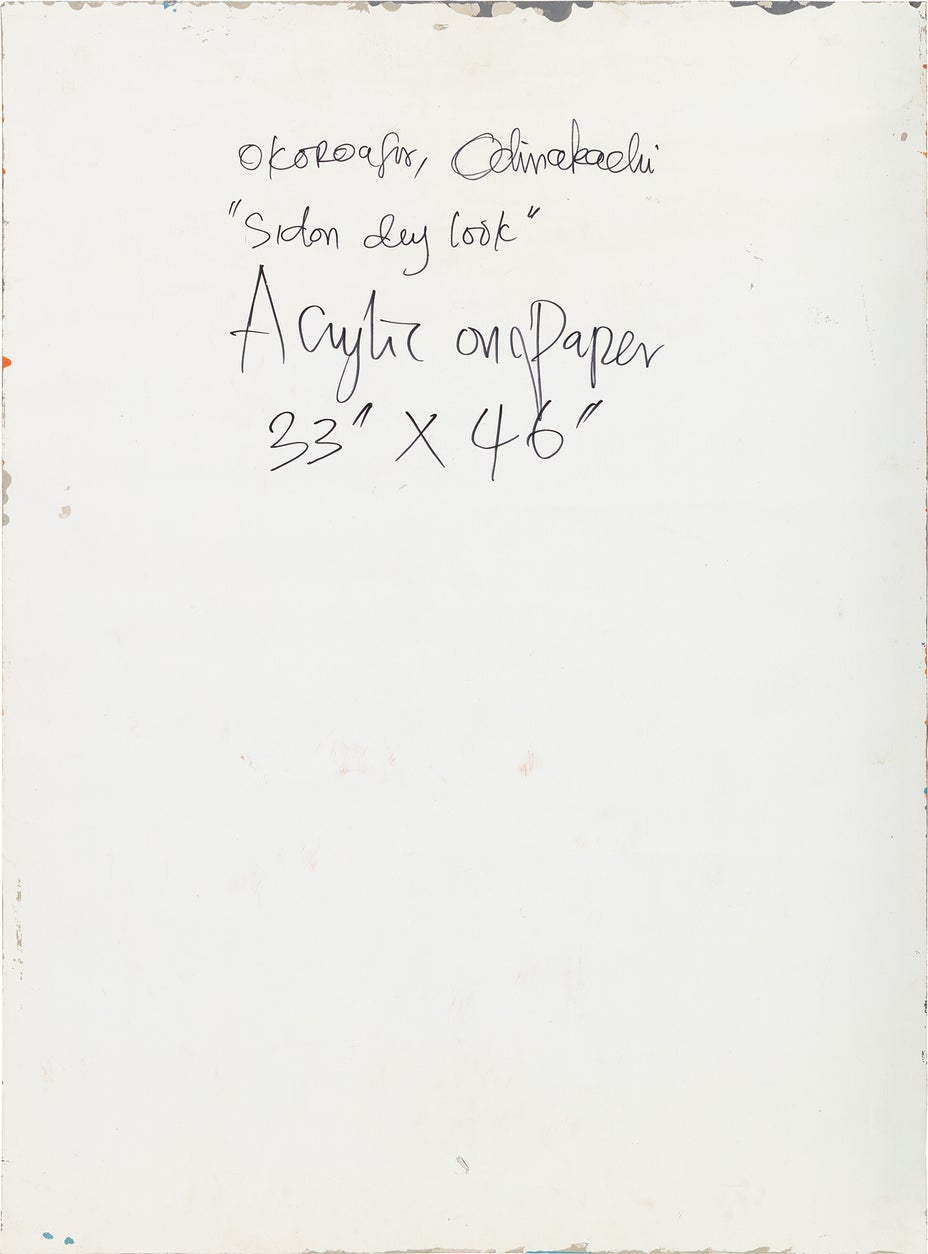 OKOROafor, Odinakachi
"Sidon dey look"
Acrylic on Paper
33" X 46"